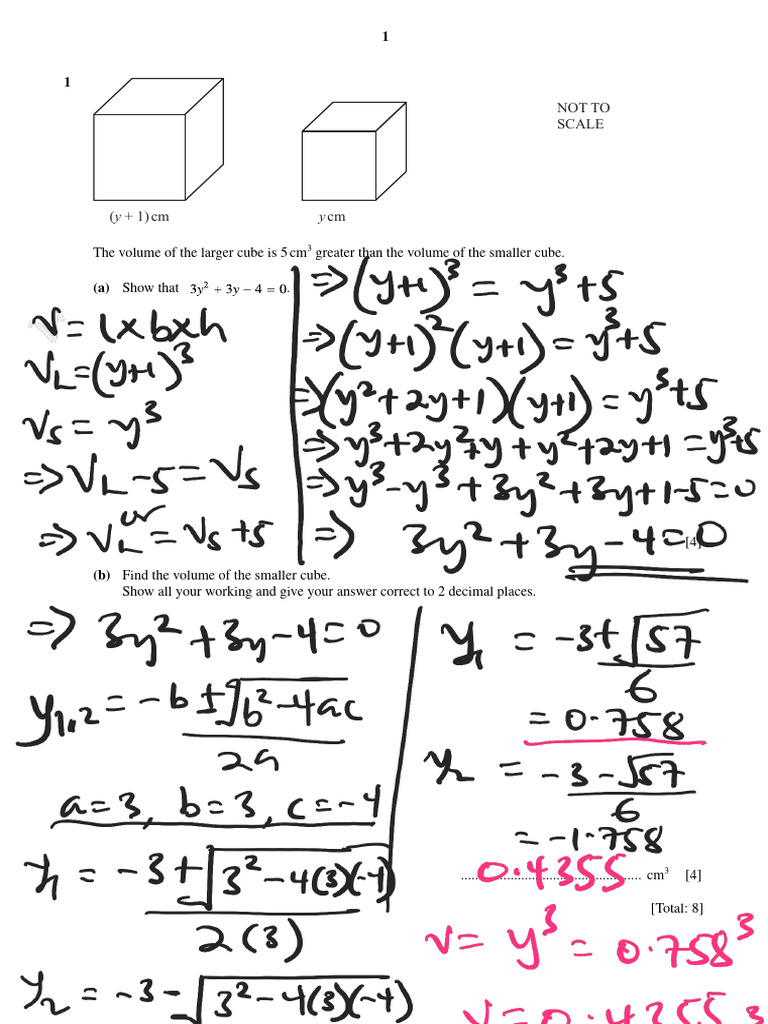 1
1
NOT TO
SCALE
(y + 1) cm
y cm
The volume of the larger cube is 5 cm³ greater than the volume of the smaller cube.
(a) Show that 3y² + 3y − 4 = 0.
V = l×b×h
V_L = (y+1)³
V_S = y³
=> V_L − 5 = V_S
or
=> V_L = V_S + 5
=> (y+1)³ = y³+5
=> (y+1)² (y+1) = y³+5
=> (y²+2y+1)(y+1) = y³+5
=> y³+2y²+y+y²+2y+1 = y³+5
=> y³−y³+3y²+3y+1−5=0
=> 3y²+3y−4=0
[4]
(b) Find the volume of the smaller cube.
Show all your working and give your answer correct to 2 decimal places.
=> 3y²+3y−4=0
y₁,₂ = −b±√b²−4ac
2a
a=3, b=3, c=−4
y₁ = −3+√3²−4(3)(−4)
2(3)
y₂ = −3−√3²−4(3)(−4)
y₁ = −3+√57
6
= 0.758
y₂ = −3−√57
6
= −1.758
0.4355 cm³ [4]
[Total: 8]
V = y³ = 0.758³
V = 0.4355